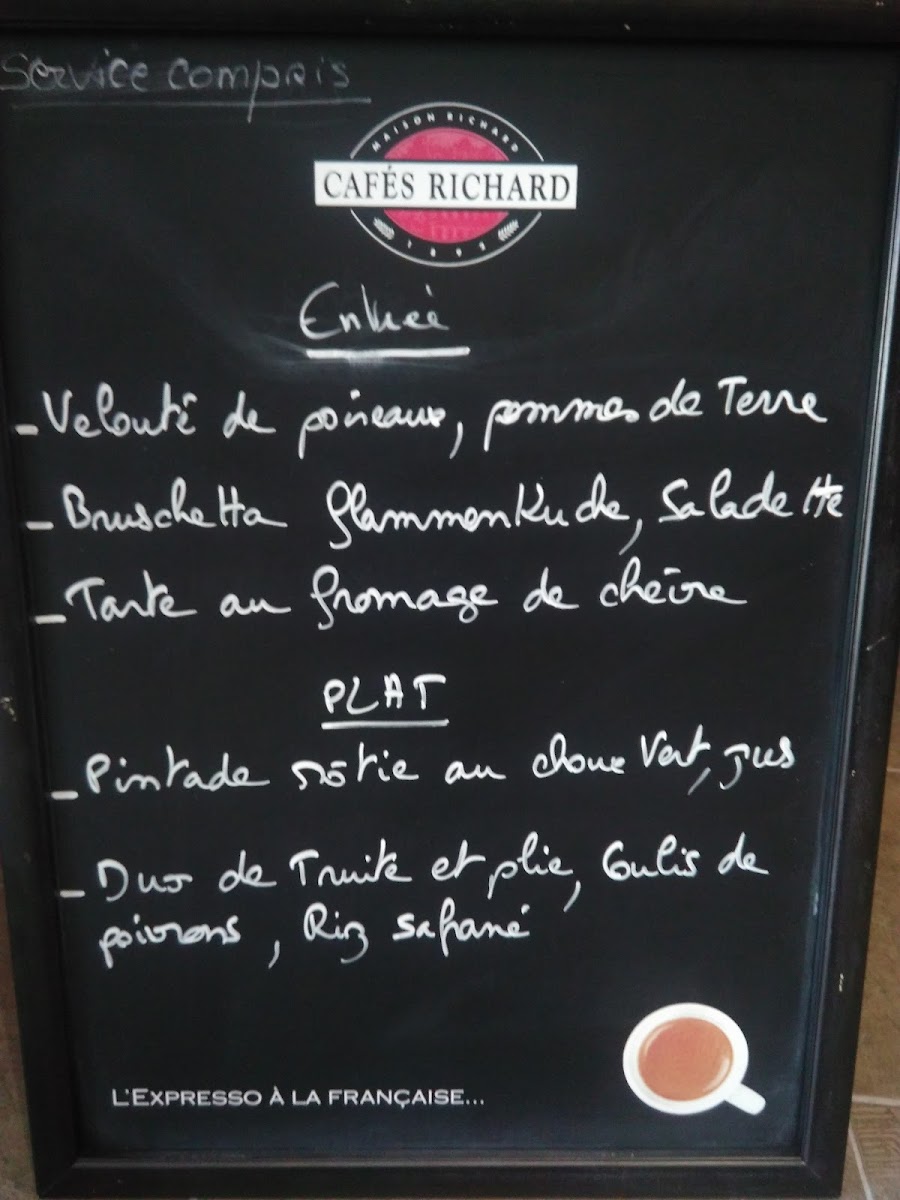 Service compris
MAISON RICHARD
CAFÉS RICHARD
1892
Entrée
- Velouté de poireaux, pommes de Terre
- Bruschetta flammenkuche, Saladette
- Tarte au fromage de chèvre
PLAT
- Pintade rôtie au choux Vert, jus
- Duo de Truite et plie, Coulis de
poivrons, Riz safrané
L'EXPRESSO À LA FRANÇAISE...